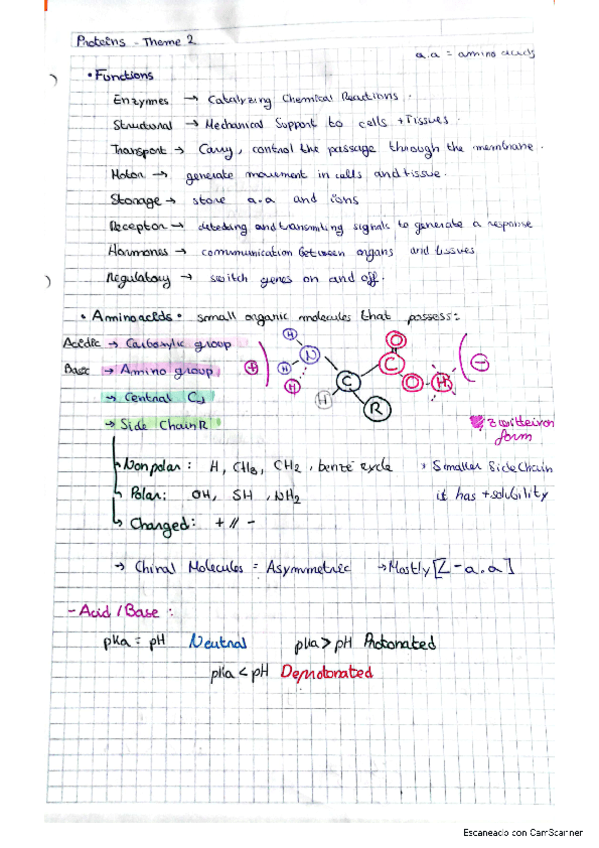 Proteins - Theme 2
a.a = amino acids
• Functions
Enzymes → Catalyzing Chemical Reactions.
Structural → Mechanical Support to cells + Tissues.
Transport → Carry, control the passage through the membrane.
Motor → generate movement in cells and tissue.
Storage → store a.a and ions
Receptor → detecting and transmiting signals to generate a response
Hormones → communication between organs and tissues
Regulatory → switch genes on and off.
• Aminoacids • small organic molecules that possess:
Acidic → Carboxylic group
Base → Amino group
→ Central C
→ Side Chain R
+
H
H
H
N
H
C
R
C
O
O
H
-
zwitteiron
form
↳ Nonpolar: H, CH3, CH2, benze cycle
↳ Polar: OH, SH, NH2
↳ Charged: + // -
Smaller Side Chain
it has + solubility
→ Chiral Molecules = Asymmetric → Mostly [L-a.a]
- Acid / Base:
pka = pH Neutral pka > pH Protonated
pka < pH Deprotonated
Escaneado con CamScanner